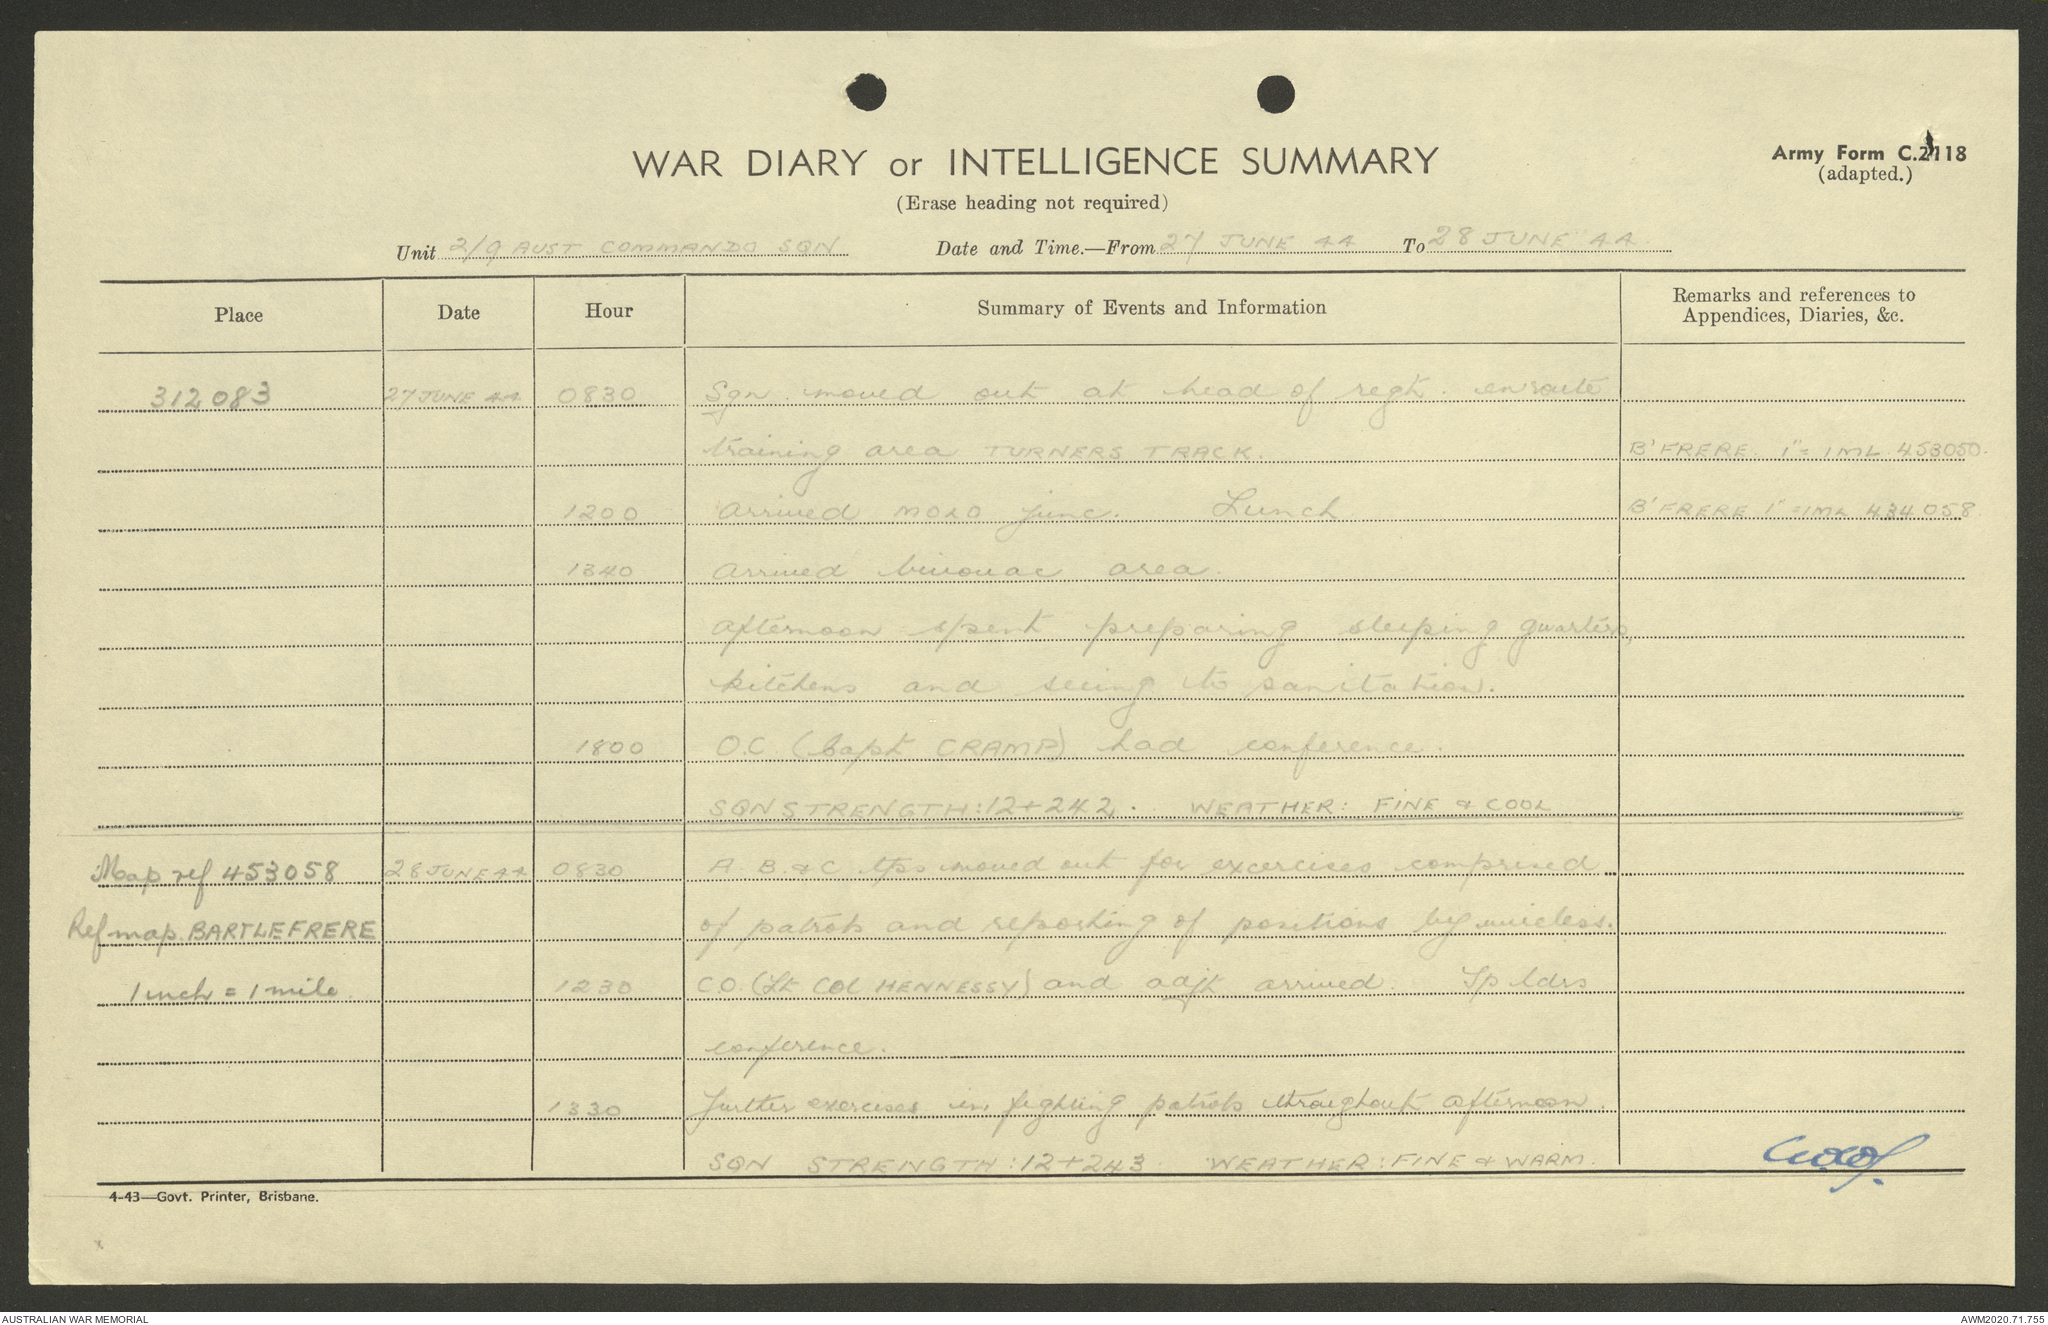 WAR DIARY or INTELLIGENCE SUMMARY
Army Form C.2118
(adapted.)
(Erase heading not required)
Unit 2/9 AUST COMMANDO SQN Date and Time.—From 27 JUNE 44 To 28 JUNE 44
Place Date Hour Summary of Events and Information Remarks and references to
Appendices, Diaries, &c.
312083 27 JUNE 44 0830 Sqn moved out at head of regt. enroute
training area TURNERS TRACK. B'FRERE 1" = 1ML 453050.
1200 Arrived MOLO junc. Lunch B'FRERE 1" = 1ML 434058
1340 Arrived bivouac area.
Afternoon spent preparing sleeping quarters,
kitchens and seeing to sanitation.
1800 O.C. (Capt CRAMP) had conference.
SQN STRENGTH: 12+242. WEATHER: FINE & COOL
Map ref 453058 28 JUNE 44 0830 A B & C tps moved out for excercises comprised
Ref map BARTLEFRERE of patrols and reporting of positions by wireless.
1 inch = 1 mile 1230 CO. (Lt COL HENNESSY) and adjt arrived. Tp ldrs
conference.
1330 Further exercises in fighting patrols throughout afternoon.
SQN STRENGTH: 12+243 WEATHER: FINE & WARM.
4-43—Govt. Printer, Brisbane.
AUSTRALIAN WAR MEMORIAL AWM2020.71.755